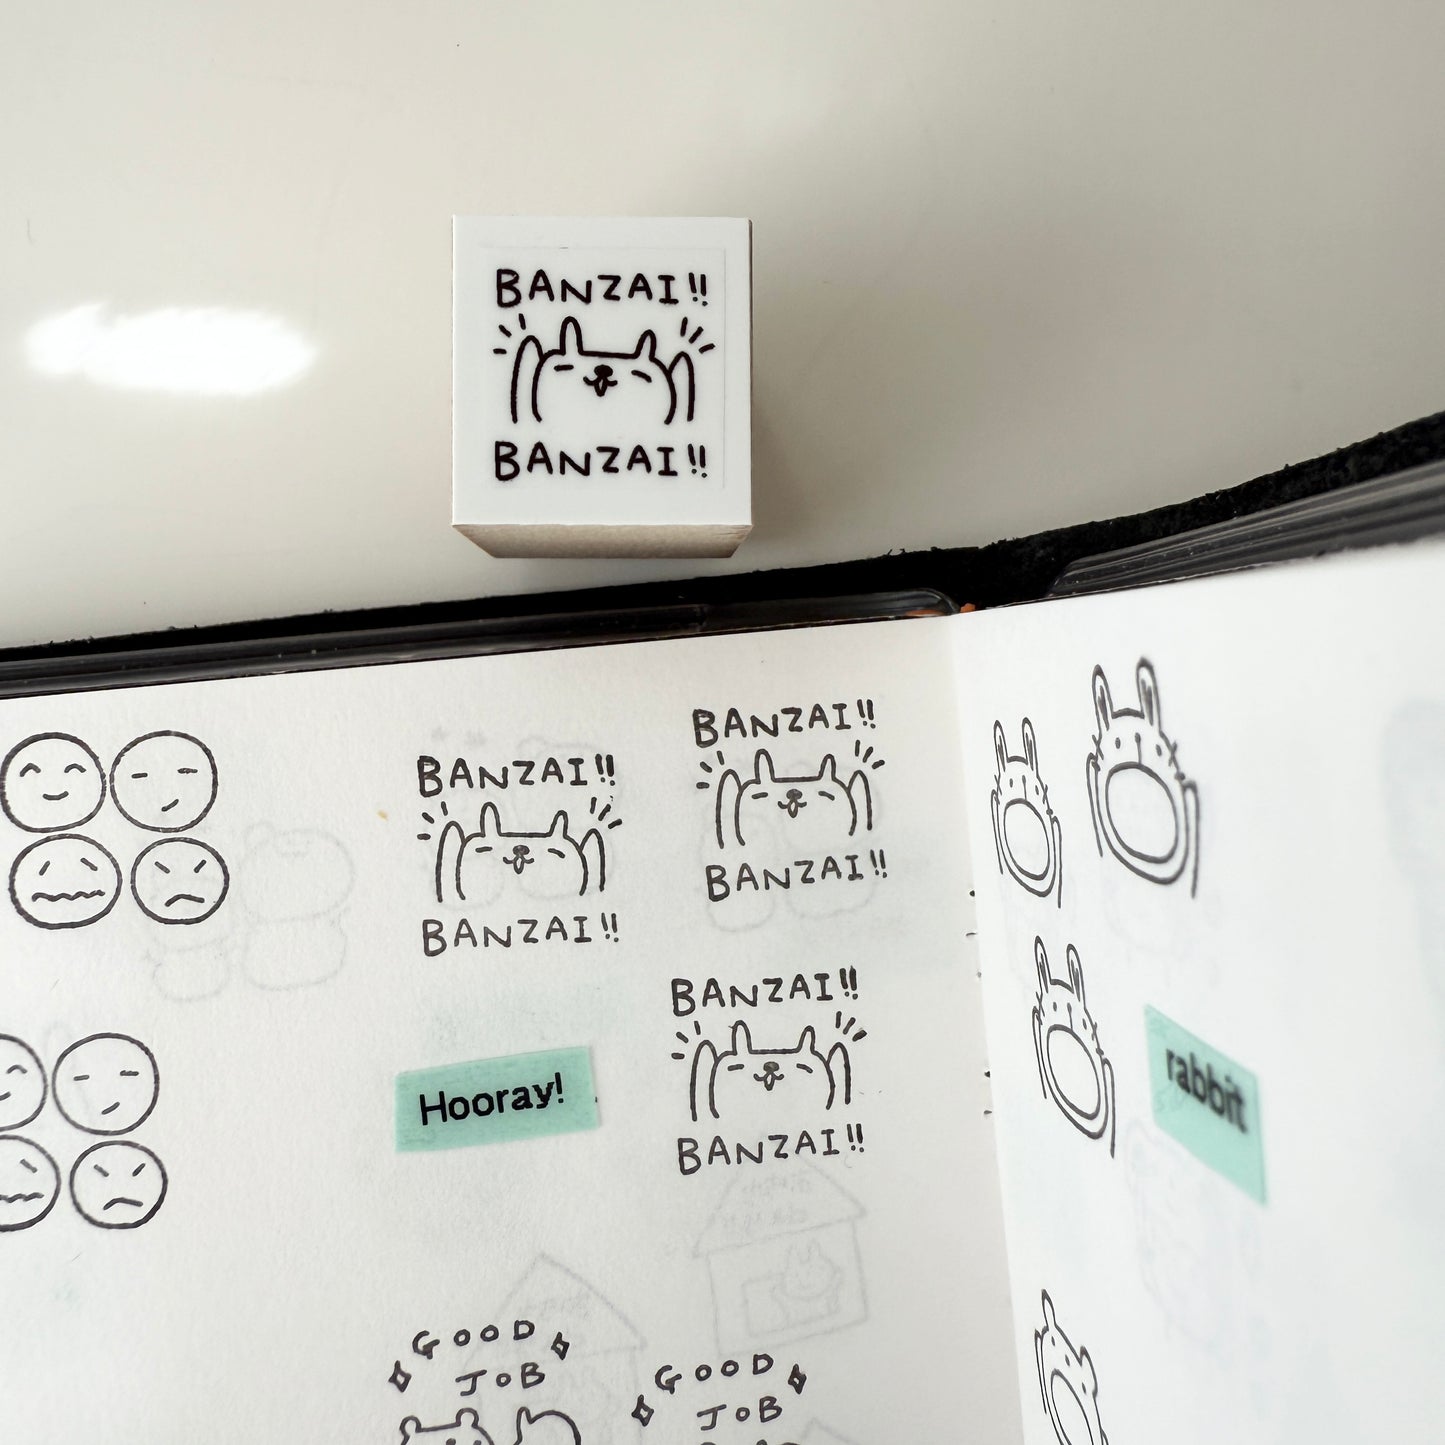 BANZAI!!
BANZAI!!
BANZAI!!
BANZAI!!
BANZAI!!
BANZAI!!
BANZAI!!
BANZAI!!
Hooray!
rabbit
GOOD
JOB
GOOD
JOB